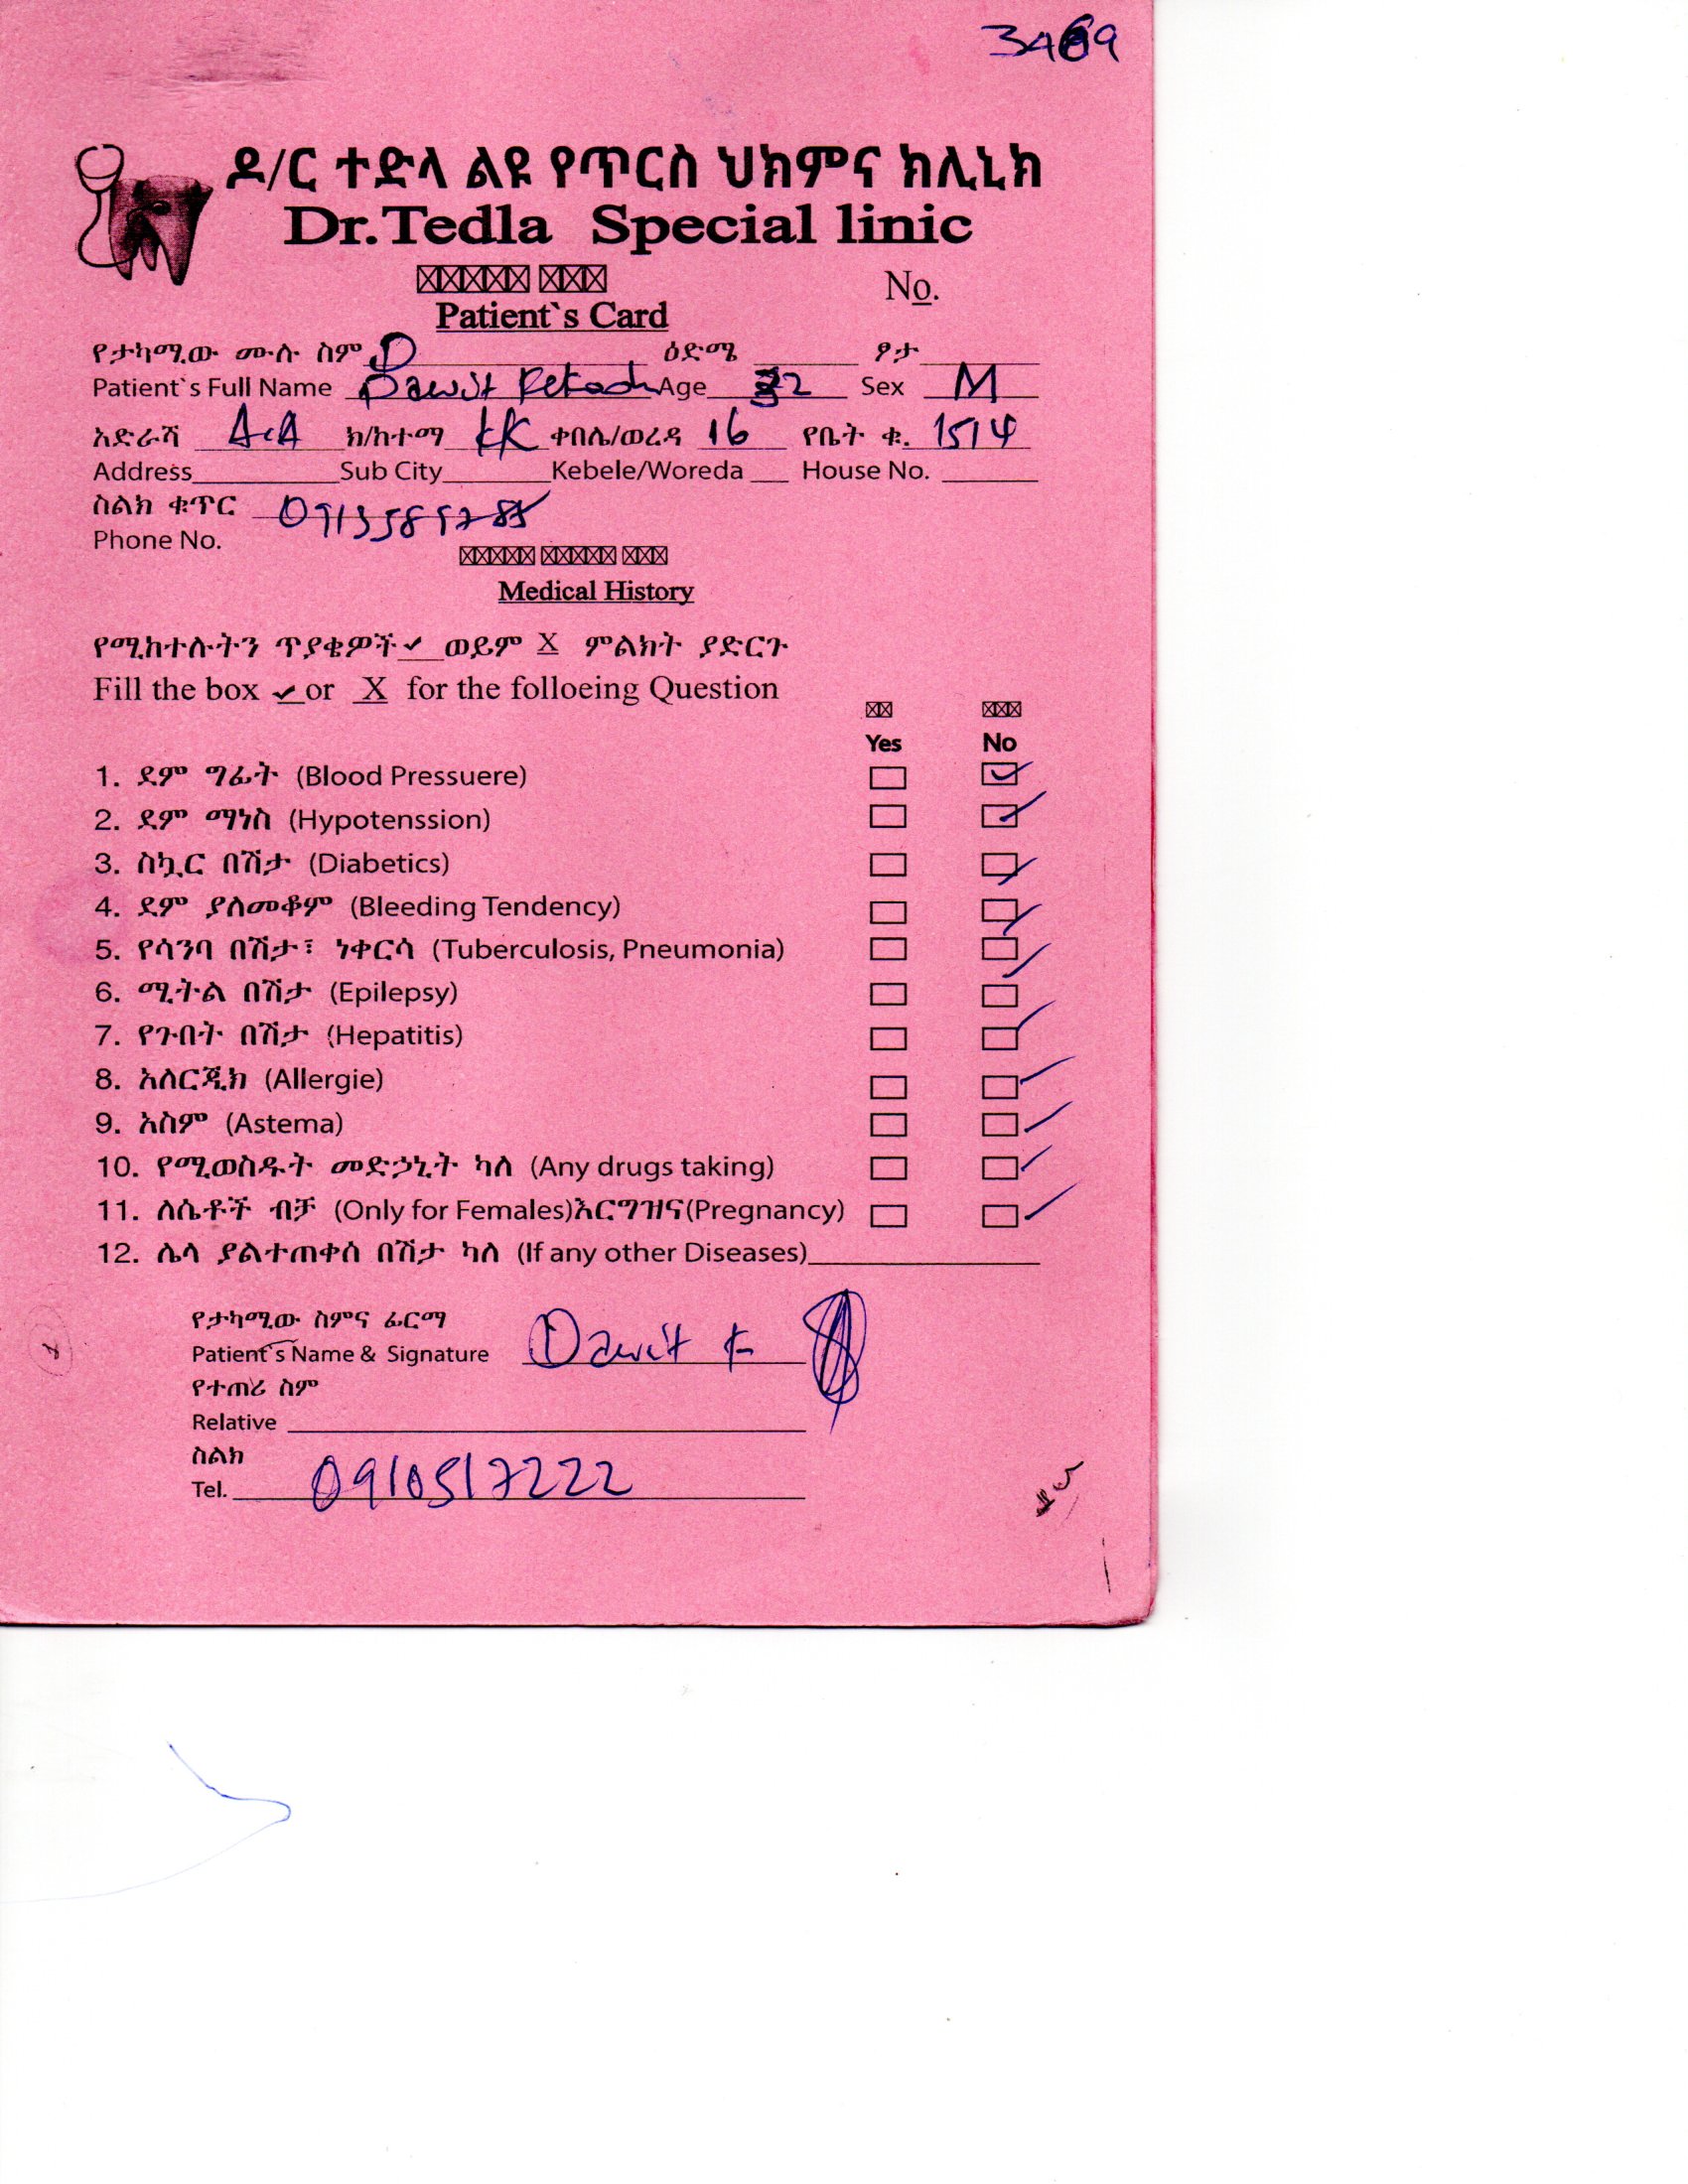 3469
ዶ/ር ተድላ ልዩ የጥርስ ህክምና ክሊኒክ
Dr.Tedla Special linic
No.
Patient`s Card
የታካሚው ሙሉ ስም D ዕድሜ ፆታ
Patient`s Full Name Dawit Age 32 Sex M
አድራሻ A.A ክ/ከተማ KK ቀበሌ/ወረዳ 16 የቤት ቁ. 1514
Address Sub City Kebele/Woreda House No.
ስልክ ቁጥር
Phone No.
Medical History
የሚከተሉትን ጥያቄዎች ✓ ወይም X ምልክት ያድርጉ
Fill the box ✓ or X for the folloeing Question
Yes No
1. ደም ግፊት (Blood Pressuere)
2. ደም ማነስ (Hypotenssion)
3. ስኳር በሽታ (Diabetics)
4. ደም ያለመቆም (Bleeding Tendency)
5. የሳንባ በሽታ፣ ነቀርሳ (Tuberculosis, Pneumonia)
6. ሚትል በሽታ (Epilepsy)
7. የጉበት በሽታ (Hepatitis)
8. አለርጂክ (Allergie)
9. አስም (Astema)
10. የሚወስዱት መድኃኒት ካለ (Any drugs taking)
11. ለሴቶች ብቻ (Only for Females)እርግዝና(Pregnancy)
12. ሌላ ያልተጠቀሰ በሽታ ካለ (If any other Diseases)
የታካሚው ስምና ፊርማ
Patient`s Name & Signature Dawit F
የተጠሪ ስም
Relative
ስልክ
Tel. 0910517222